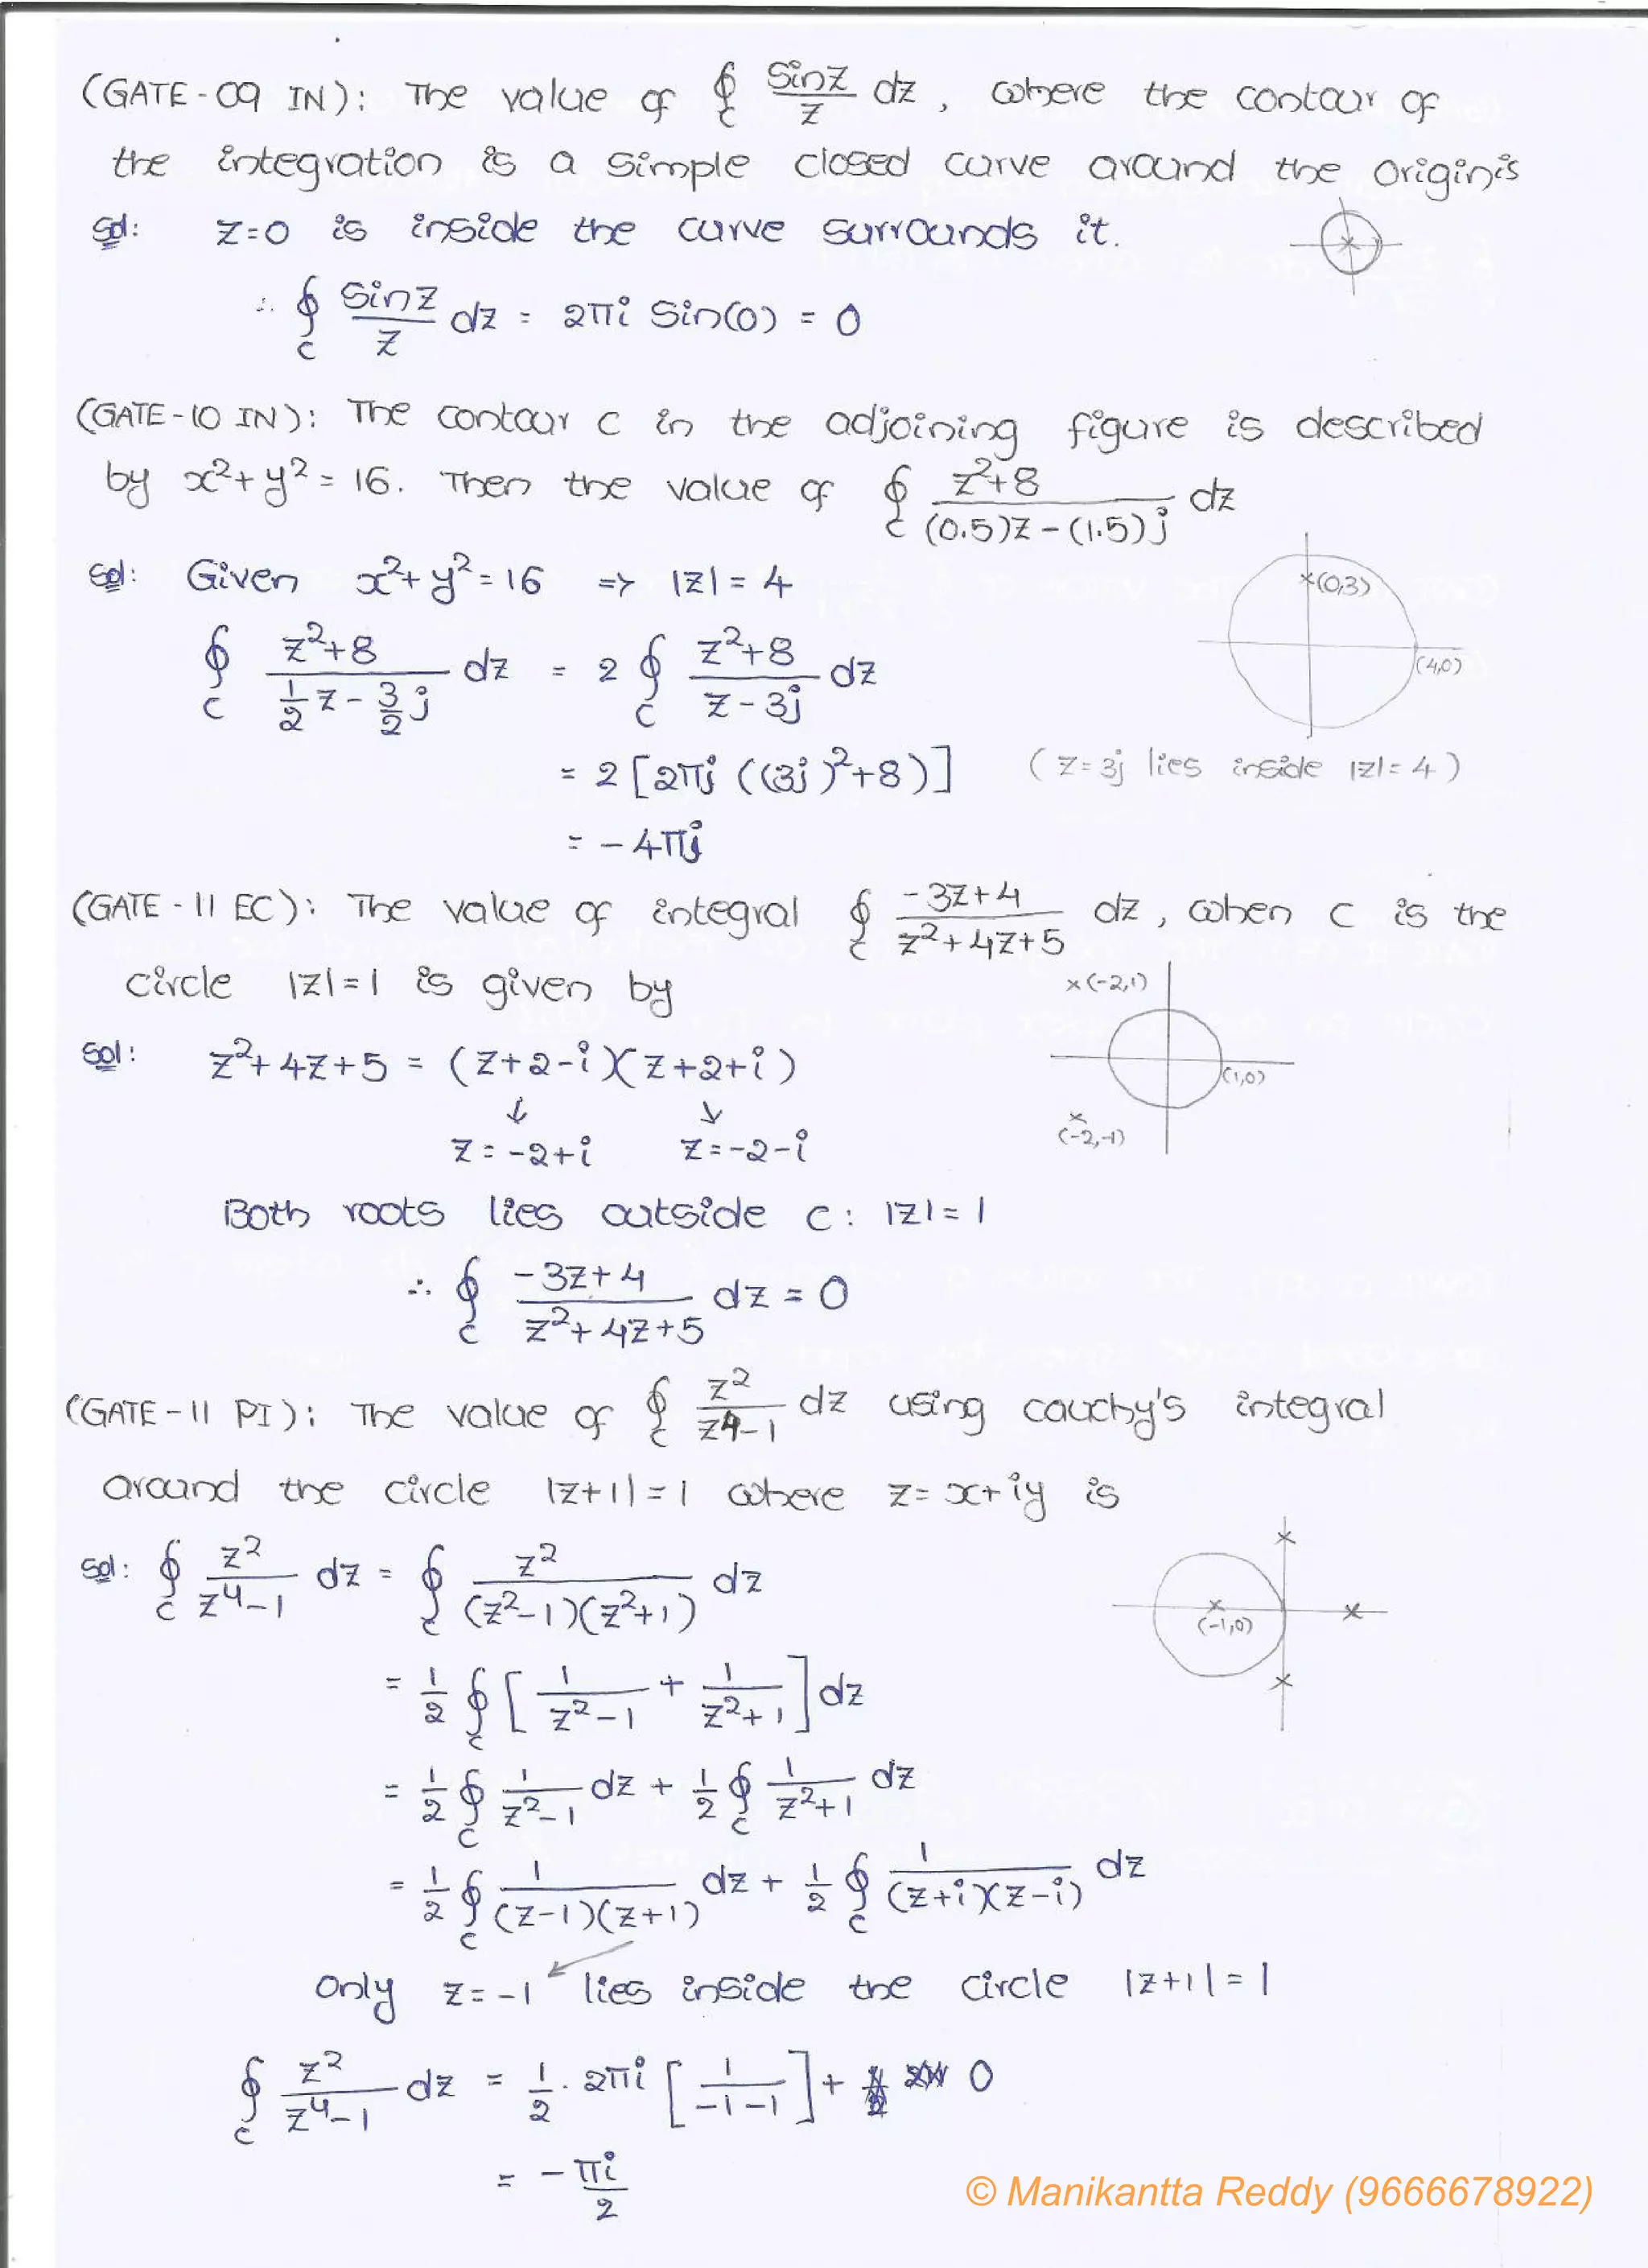 (GATE-09 IN): The value of ∮_C Sinz/z dz, where the contour of
the integration is a simple closed curve around the origin is
Sol: z=0 is inside the curve surrounds it.
∴ ∮_C Sinz/z dz = 2πi Sin(0) = 0
(GATE-10 IN): The contour C in the adjoining figure is described
by x²+y²=16. Then the value of ∮_C (z²+8)/((0.5)z-(1.5)j) dz
Sol: Given x²+y²=16 => |z|=4
×(0,3)
(4,0)
∮_C (z²+8)/(½z-3/2 j) dz = 2 ∮_C (z²+8)/(z-3j) dz
= 2[2πj ((3j)²+8)] (z=3j lies inside |z|=4)
= -4πj
(GATE-11 EC): The value of integral ∮_C (-3z+4)/(z²+4z+5) dz, when C is the
circle |z|=1 is given by
×(-2,1)
Sol: z²+4z+5 = (z+2-i)(z+2+i)
(1,0)
↓ ↓
×(-2,-1)
z=-2+i z=-2-i
Both roots lies outside C: |z|=1
∴ ∮_C (-3z+4)/(z²+4z+5) dz = 0
(GATE-11 PI): The value of ∮_C z²/(z⁴-1) dz using cauchy's integral
around the circle |z+1|=1 where z=x+iy is
Sol: ∮_C z²/(z⁴-1) dz = ∮_C z²/((z²-1)(z²+1)) dz
(-1,0)
= ½ ∮_C [1/(z²-1) + 1/(z²+1)] dz
= ½ ∮_C 1/(z²-1) dz + ½ ∮_C 1/(z²+1) dz
= ½ ∮_C 1/((z-1)(z+1)) dz + ½ ∮_C 1/((z+i)(z-i)) dz
only z=-1 lies inside the circle |z+1|=1
∮_C z²/(z⁴-1) dz = ½. 2πi [1/(-1-1)] + 0
= -πi/2
© Manikantta Reddy (9666678922)